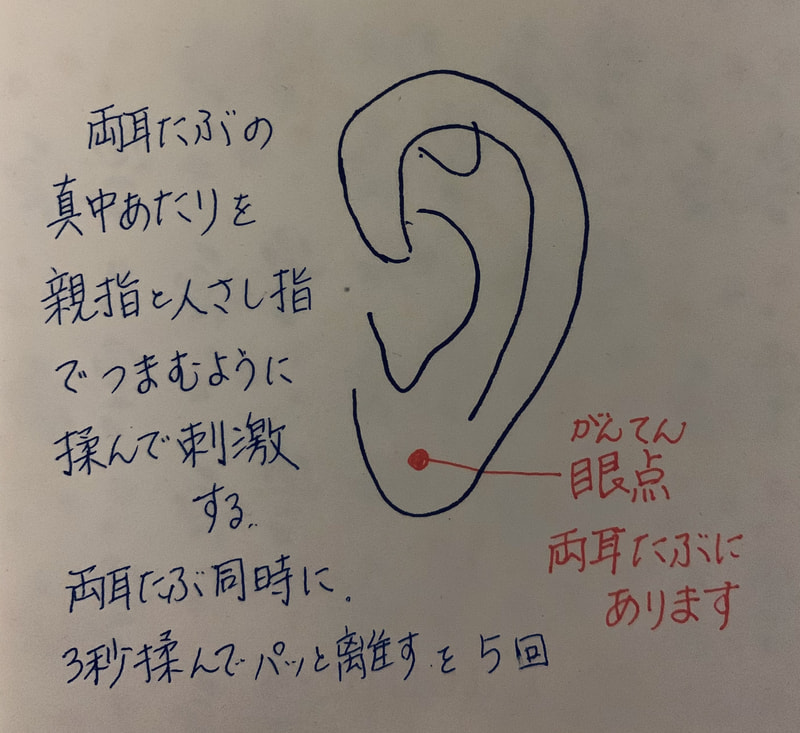 両耳たぶの
真中あたりを
親指と人さし指
でつまむように
揉んで刺激
する。
両耳たぶ同時に、
3秒揉んでパッと離すを5回
がんてん
眼点
両耳たぶに
あります